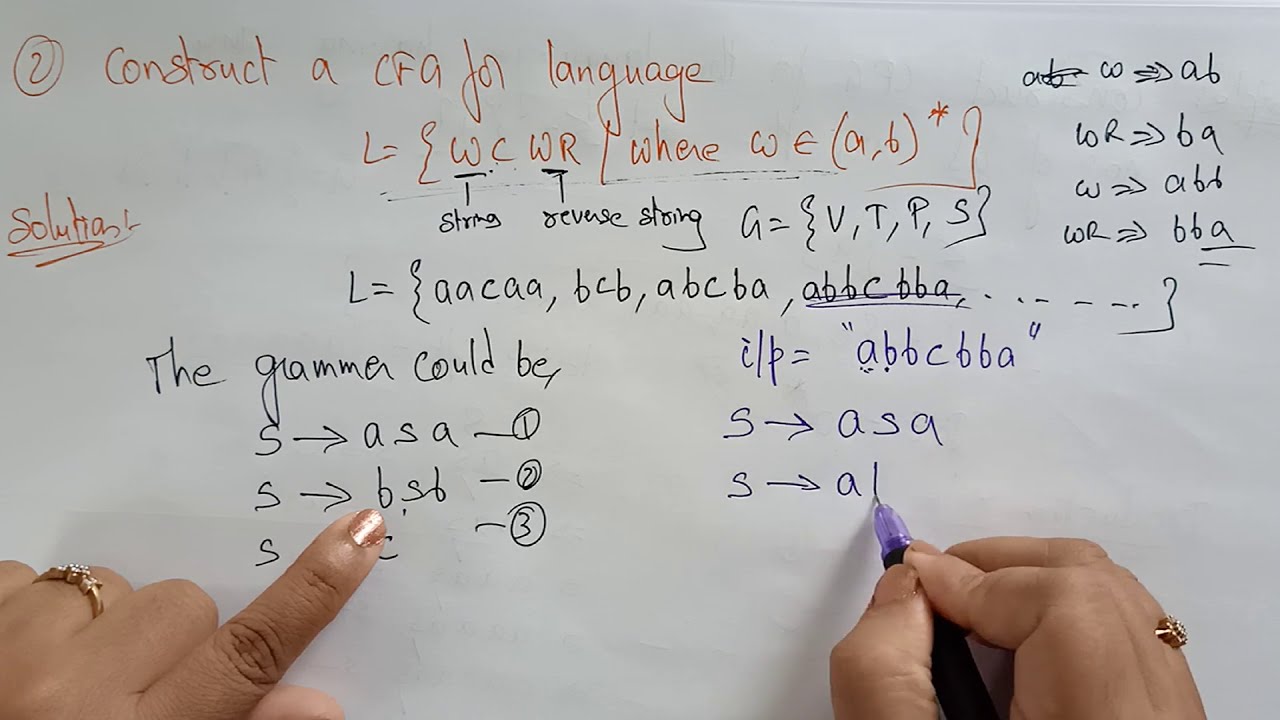 ② Construct a CFG for language
L = { WC WR / where w ∈ (a,b)* }
string reverse string
w ⇒ ab
WR ⇒ ba
w ⇒ abb
WR ⇒ bba
Solution:-
G = {V, T, P, S}
L = { aacaa, bcb, abcba, abbcbba, ........ }
The grammer could be,
S → asa —①
S → bsb —②
S c —③
i/p = "abbcbba"
S → asa
S → al